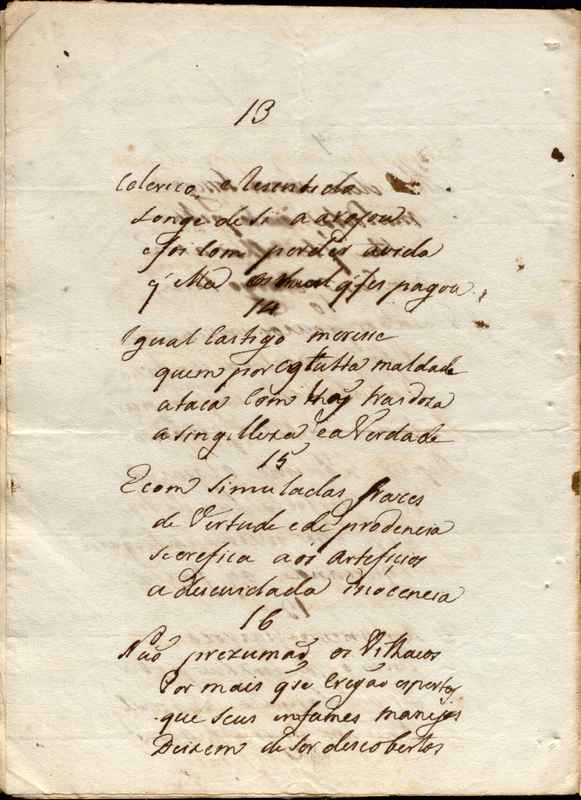 13
Colerico e Resentida
Longe de si a arojou
e foi com perder a vida
q̃ ella o mal q̃ fes pagou.
14
Igual Castigo merese
quem por oculta maldade
ataca com mão traidora
a singilleza e a Verdade
15
E com simuladas frazes
de Vertude e de prodencia
screfica aos arteficios
a descuidada inocencia
16
Não prezumaõ os Vilhacos
Por mais que Creçaõ espertos
que seus infames manejos
Deixem de Ser descobertos